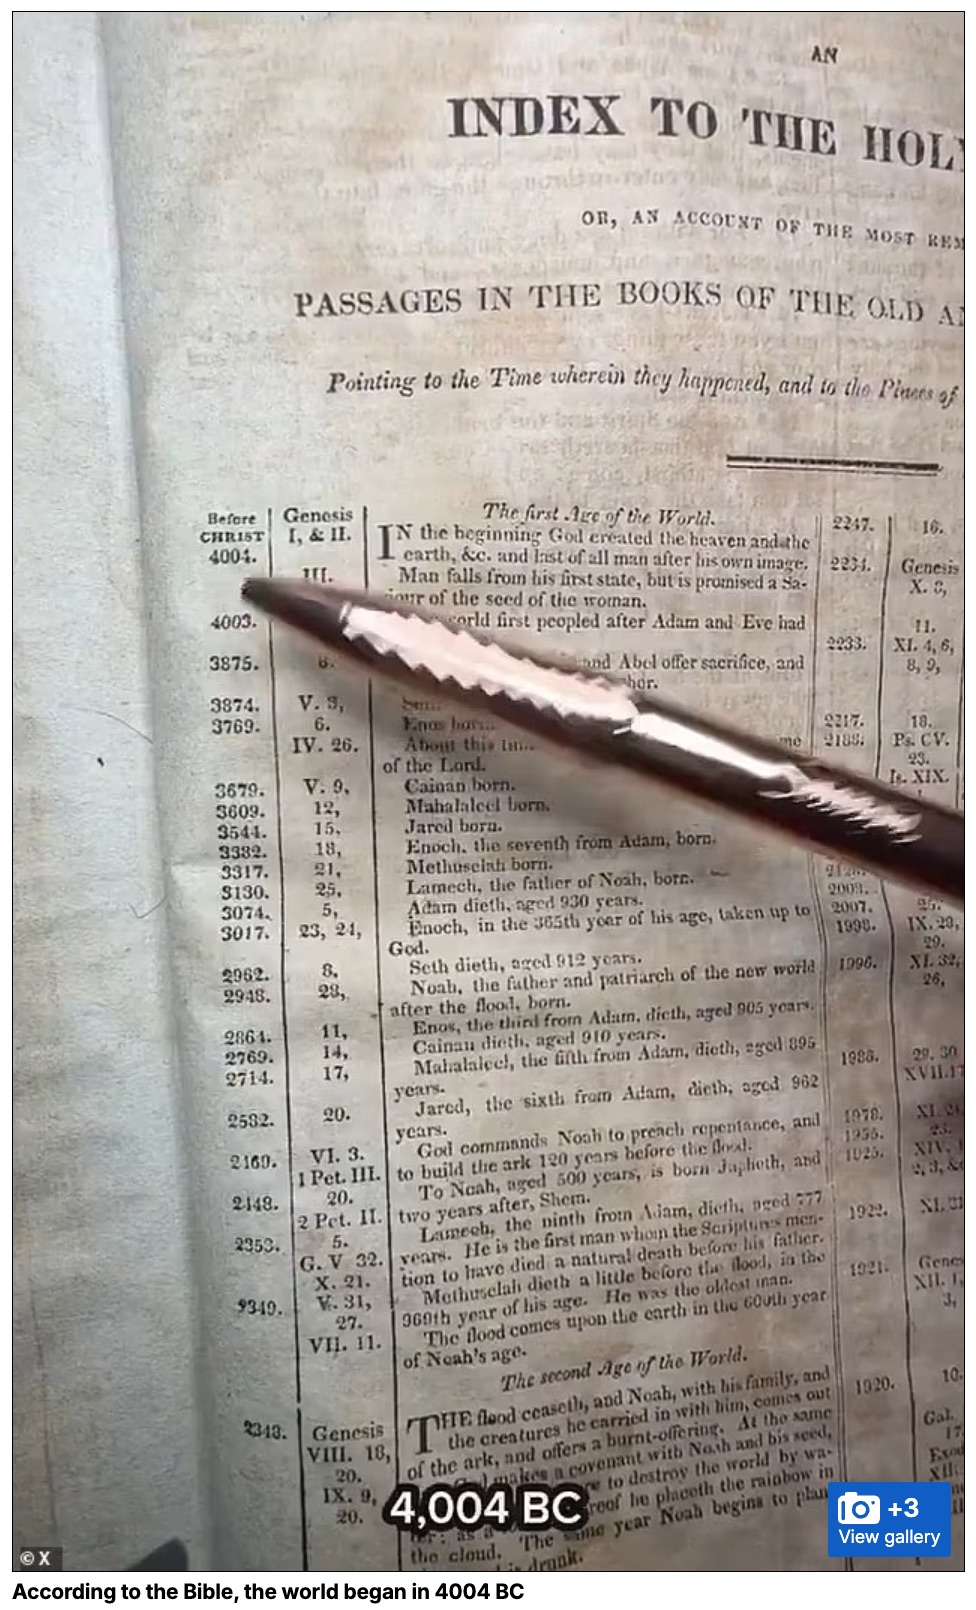 AN
INDEX TO THE HOLY
OR, AN ACCOUNT OF THE MOST REM
PASSAGES IN THE BOOKS OF THE OLD A
Pointing to the Time wherein they happened, and to the Places of
Before
CHRIST
4004.
4003.
3875.
3874.
3769.
3679.
3609.
3544.
3382.
3317.
3130.
3074.
3017.
2962.
2948.
2864.
2769.
2714.
2582.
2469.
2448.
2353.
2349.
2348.
Genesis
I, & II.
III.
V. 3,
6.
IV. 26.
V. 9,
12,
15,
18,
21,
25,
5,
23, 24,
8,
28,
11,
14,
17,
20.
VI. 3.
1 Pet. III.
20.
2 Pet. II.
5.
G. V 32.
X. 21.
V. 31,
27.
VII. 11.
Genesis
VIII. 18,
20.
IX. 9,
20.
The first Age of the World.
IN the beginning God created the heaven and the
earth, &c. and last of all man after his own image.
Man falls from his first state, but is promised a Sa-
of the seed of the woman.
first peopled after Adam and Eve had
and Abel offer sacrifice, and
Enos
About this
of the Lord.
Cainan born.
Mahalaleel born.
Jared born.
Enoch, the seventh from Adam, born.
Methuselah born.
Lamech, the father of Noah, born.
Adam dieth, aged 930 years.
Enoch, in the 365th year of his age, taken up to
God.
Seth dieth, aged 912 years.
Noah, the father and patriarch of the new world
after the flood, born.
Enos, the third from Adam, dieth, aged 905 years.
Cainan dieth, aged 910 years.
Mahalaleel, the fifth from Adam, dieth, aged 895
years.
Jared, the sixth from Adam, dieth, aged 962
years.
God commands Noah to preach repentance, and
to build the ark 120 years before the flood.
To Noah, aged 500 years, is born Japheth, and
two years after, Shem.
Lamech, the ninth from Adam, dieth, aged 777
years. He is the first man whom the Scriptures men-
tion to have died a natural death before his father.
Methuselah dieth a little before the flood, in the
969th year of his age. He was the oldest man.
The flood comes upon the earth in the 600th year
of Noah's age.
The second Age of the World.
THE flood ceaseth, and Noah, with his family, and
the creatures he carried in with him, comes out
of the ark, and offers a burnt-offering. At the same
God makes a covenant with Noah and his seed,
to destroy the world by wa-
he placeth the rainbow in
the cloud. The same year Noah begins to plan
is drunk.
2247.
2234.
2233.
2217.
2188.
2008.
2007.
1998.
1996.
1986.
1978.
1925.
1922.
1921.
1920.
16.
Genesis
X. 8,
11.
XI. 4, 6,
8, 9,
18.
Ps. CV.
23.
Is. XIX.
IX. 28,
29.
XI. 32,
26,
29. 30
XVII.17
XIV.
XI. 31
XII. 1,
3,
10.
Gal.
17.
4,004 BC
+3
View gallery
© X
According to the Bible, the world began in 4004 BC